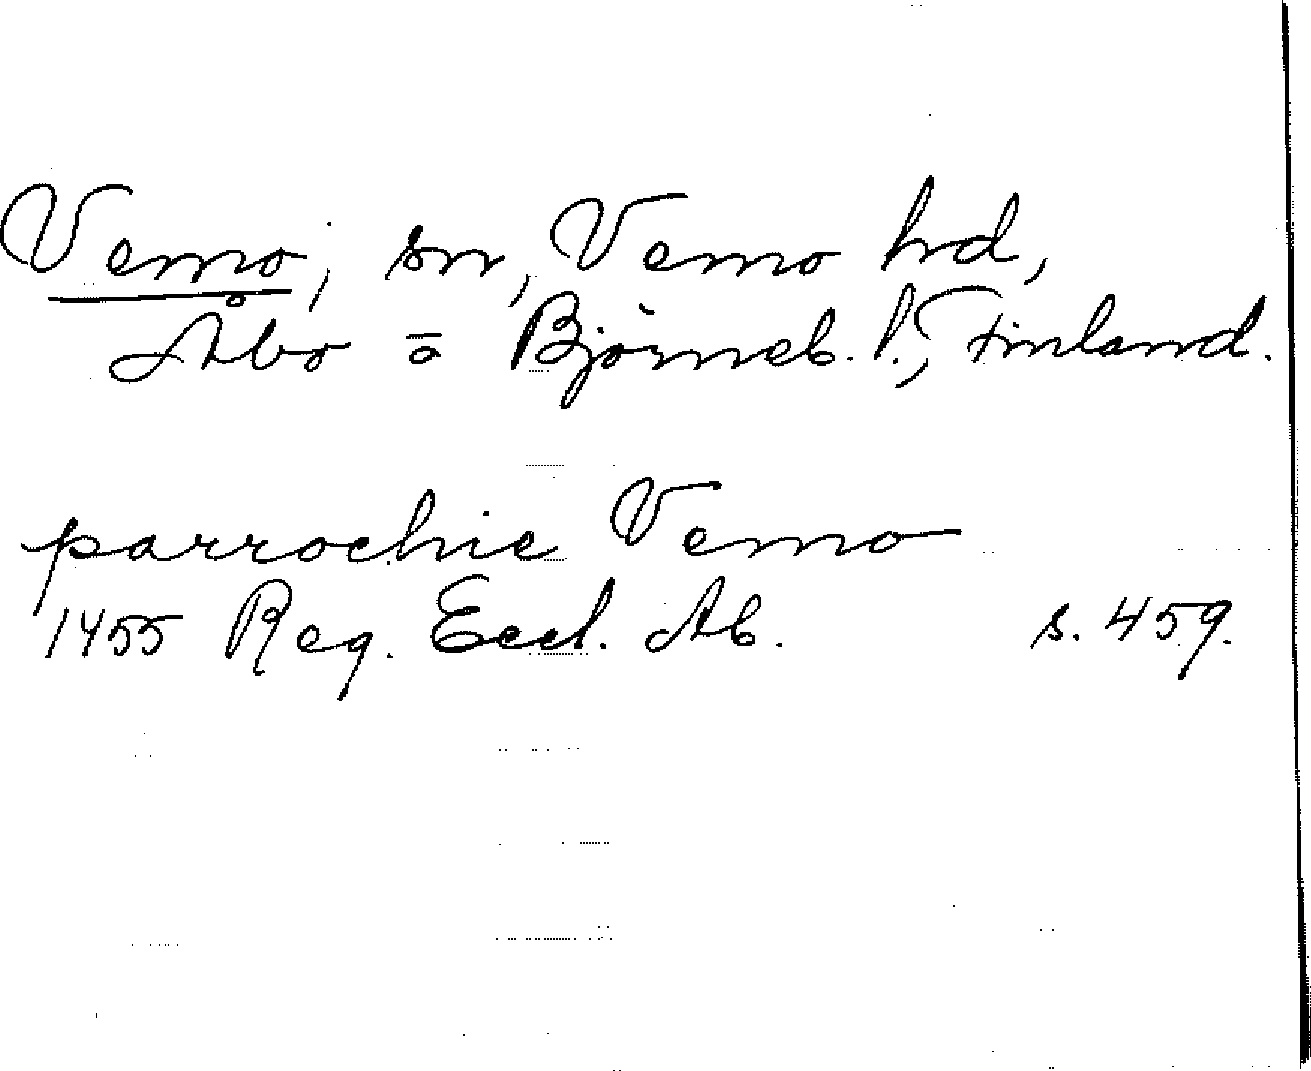 Vemo, sn, Vemo hd,
Åbo o Björneb. l., Finland.
parrochie Vemo
1455 Reg. Eccl. Ab. s. 459.